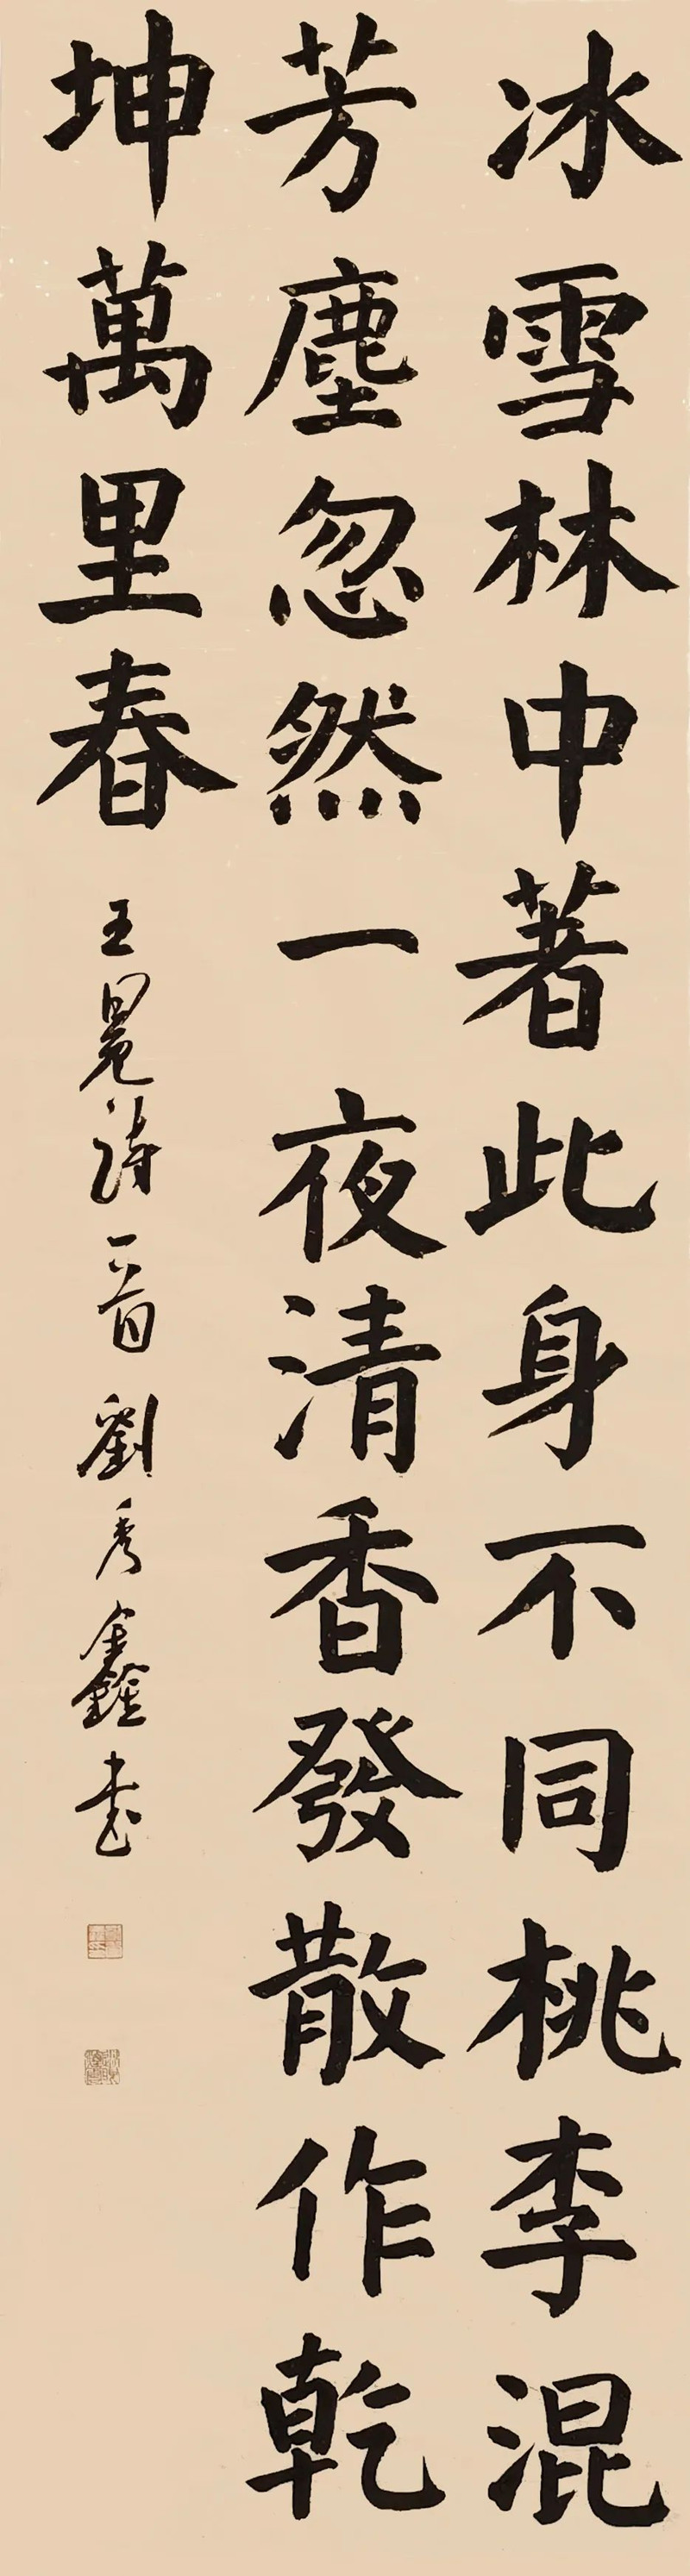 冰雪林中著此身不同桃李混
芳塵忽然一夜清香發散作乾
坤萬里春
王冕詩一首劉秀鑫書